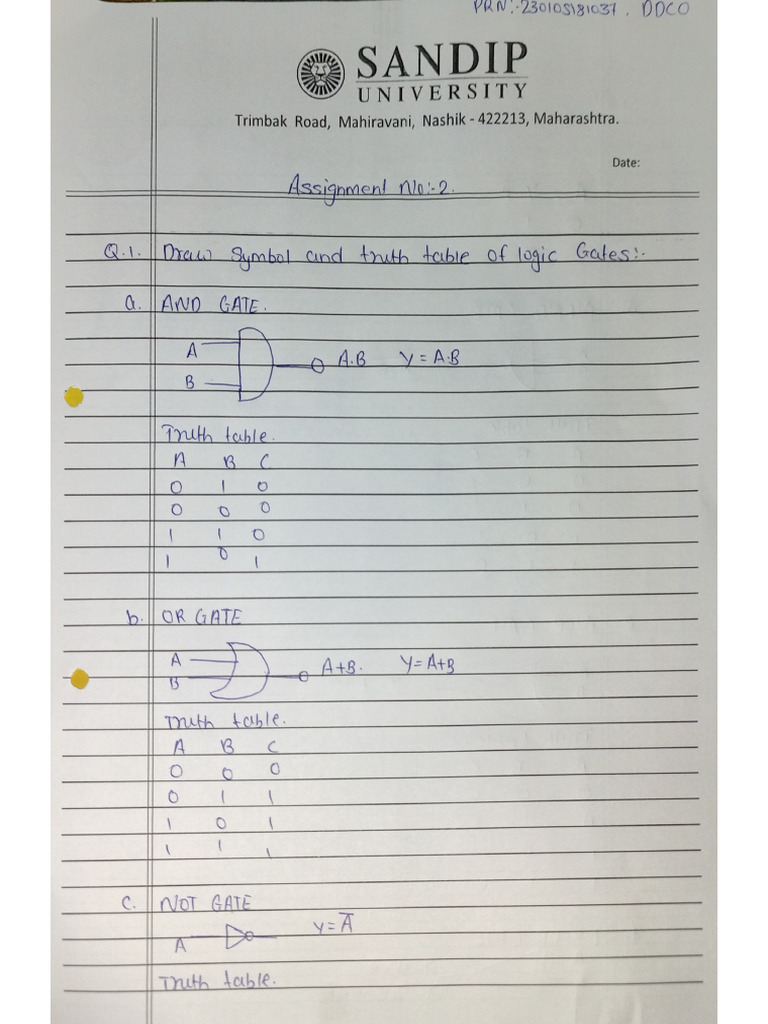 PRN:-230105181037, DDCO
SANDIP
UNIVERSITY
Trimbak Road, Mahiravani, Nashik - 422213, Maharashtra.
Date:
Assignment No:-2.
Q.1. Draw symbol and truth table of logic Gates:-
a. AND GATE.
A
A.B Y = A.B
B
Truth table.
A B C
0 1 0
0 0 0
1 1 0
1 0 1
b. OR GATE
A
A+B. Y=A+B
B
Truth table.
A B C
0 0 0
0 1 1
1 0 1
1 1 1
C. NOT GATE
A Y=A̅
Truth table.